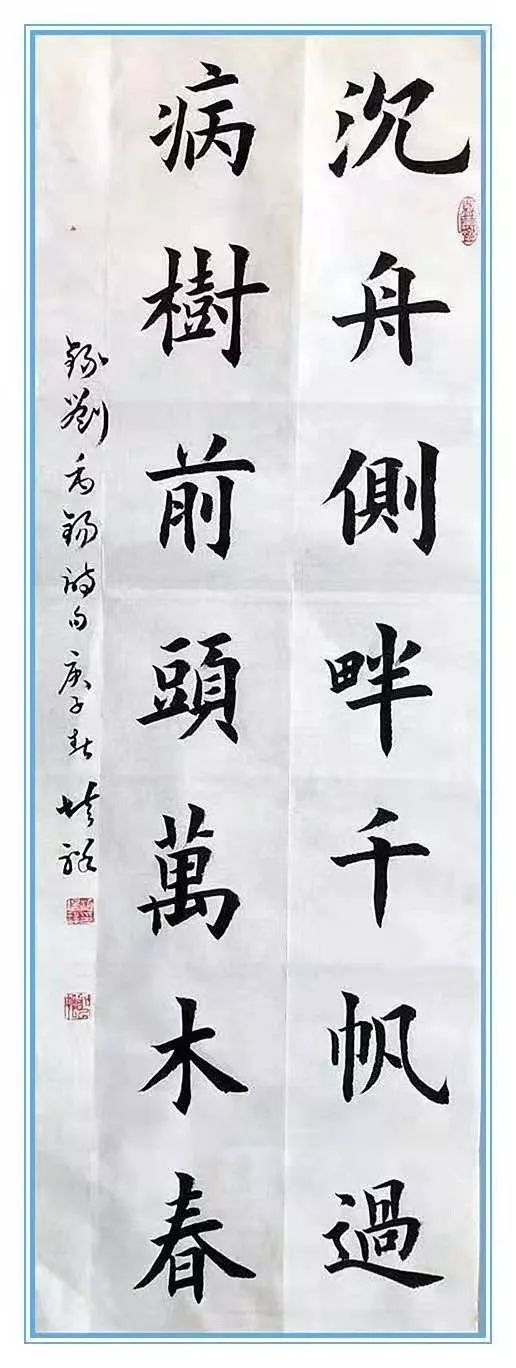 沉舟側畔千帆過
病樹前頭萬木春
錄劉禹錫詩句庚子春